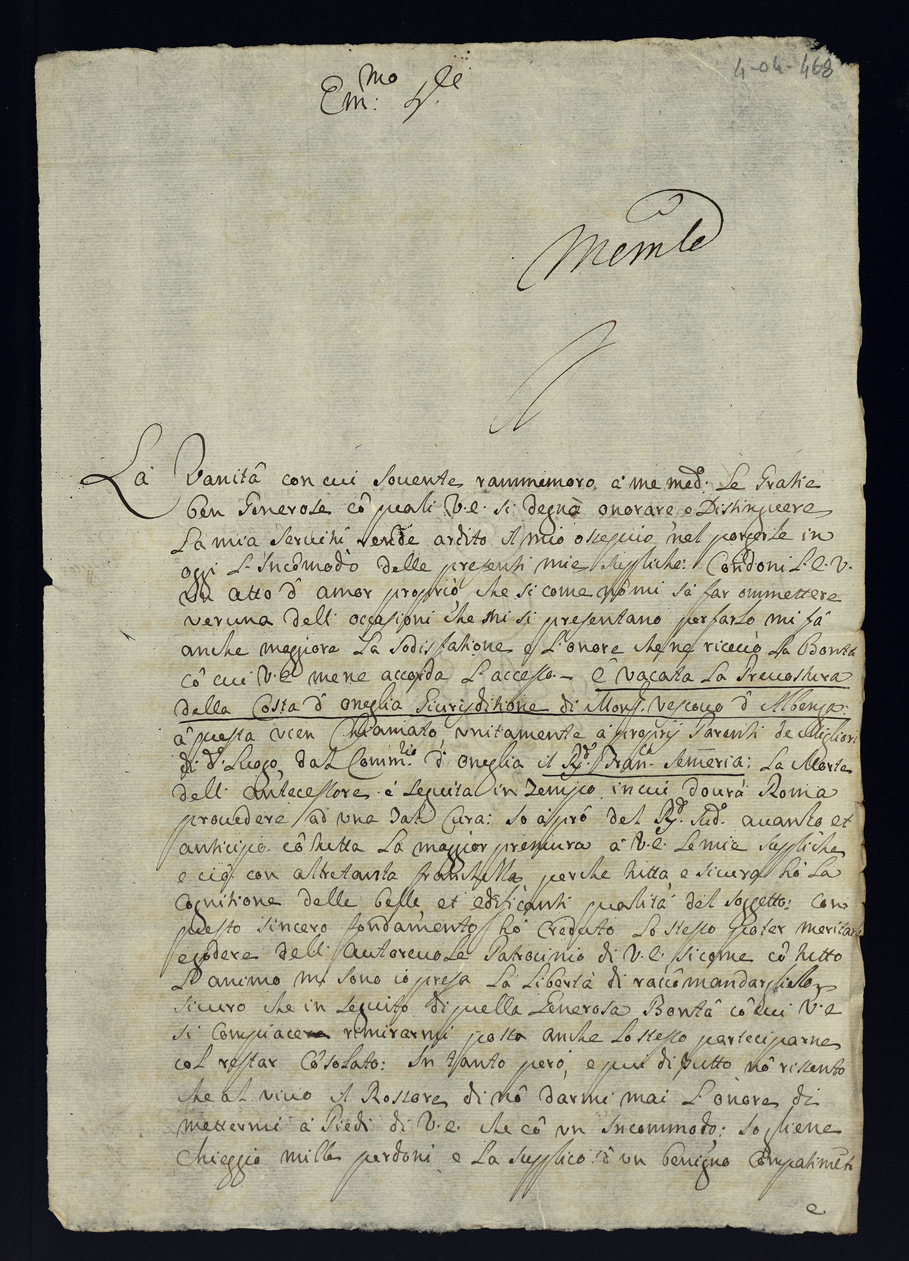 4-04-468
Em:mo Sre
La Vanità con cui sovente rammemoro à me med:o Le Gratie
ben Generose cô quali V.e. si degnà onorare e Distinguere
La mia Servitù rende ardito il mio ossequio nel porgerle in
oggi L'Incômodo delle presenti mie suppliche: Condoni L.e.V.
un atto d'amor proprio, che si come nô mi sà far ommettere
veruna dell occasioni che mi si presentano per farlo mi fà
anche maggiore La sodisfatione e L'onore che ne ricevo La Bontà
cô cui V.e. me ne accorda L'accesso. È vacata La Prevostura
della Costa d'Oneglia Giurisditione di Mons.r Vescovo d'Albenga:
à questa vien Chiamato, unitamente à proprij Parenti de Migliori
di d.o Luogo, dal Comm:rio d'Oneglia il R.do Fran.co Semeria: La Morte
dell antecessore è seguita in Tempo in cui dovrà Roma
provedere ad una Tal Cura: Io à prô del R.do Sud.o avanzo et
anticipo cô tutta La maggior premura à V.e. Le mie suppliche
e ciò con altretanta franchezza perche tutta e sicura hò La
Cognitione delle belle et edificanti qualità del soggetto: con
questo sincero fondamento hò creduto Lo stesso poter meritare
e godere dell'autorevole Patrocinio di V.e. sicome cô tutto
L'animo mi sono io presa La Libertà di raccômandarglielo,
sicuro che in seguito di quella Generosa Bontà cô cui V.e.
si Compiace rimirarmi possa anche Lo stesso participarne
col restar Côsolato: In tanto però, e piu di tutto nô risento
che al vivo il Rossore di nô darmi mai L'onore di
mettermi à Piedi di V.e. che cô un Incommodo: Io gliene
Chieggio mille perdoni e La supplico d'un benigno Compatimêto
e